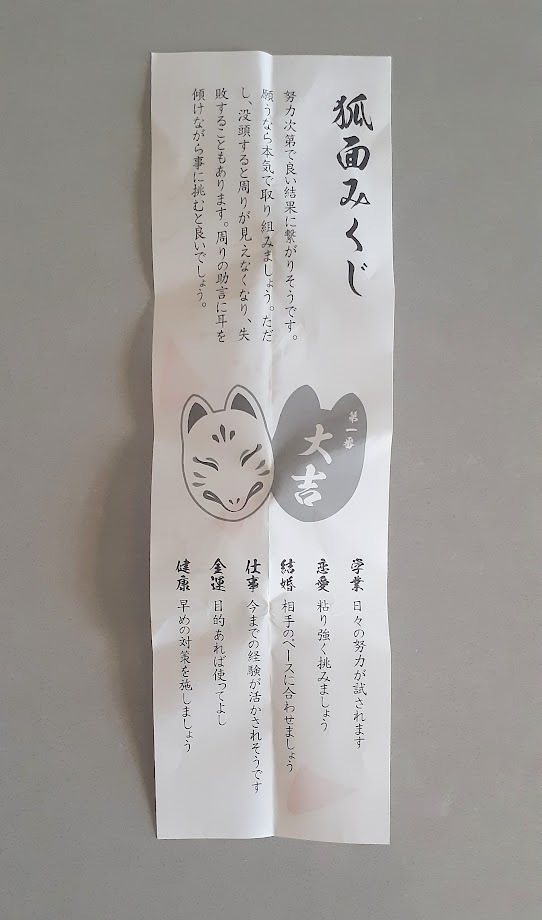 狐面みくじ
努力次第で良い結果に繋がりそうです。
願うなら本気で取り組みましょう。ただ
し、没頭すると周りが見えなくなり、失
敗することもあります。周りの助言に耳を
傾けながら事に挑むと良いでしょう。
第一番
大吉
学業 日々の努力が試されます
恋愛 粘り強く挑みましょう
結婚 相手のペースに合わせましょう
仕事 今までの経験が活かされそうです
金運 目的あれば使ってよし
健康 早めの対策を施しましょう